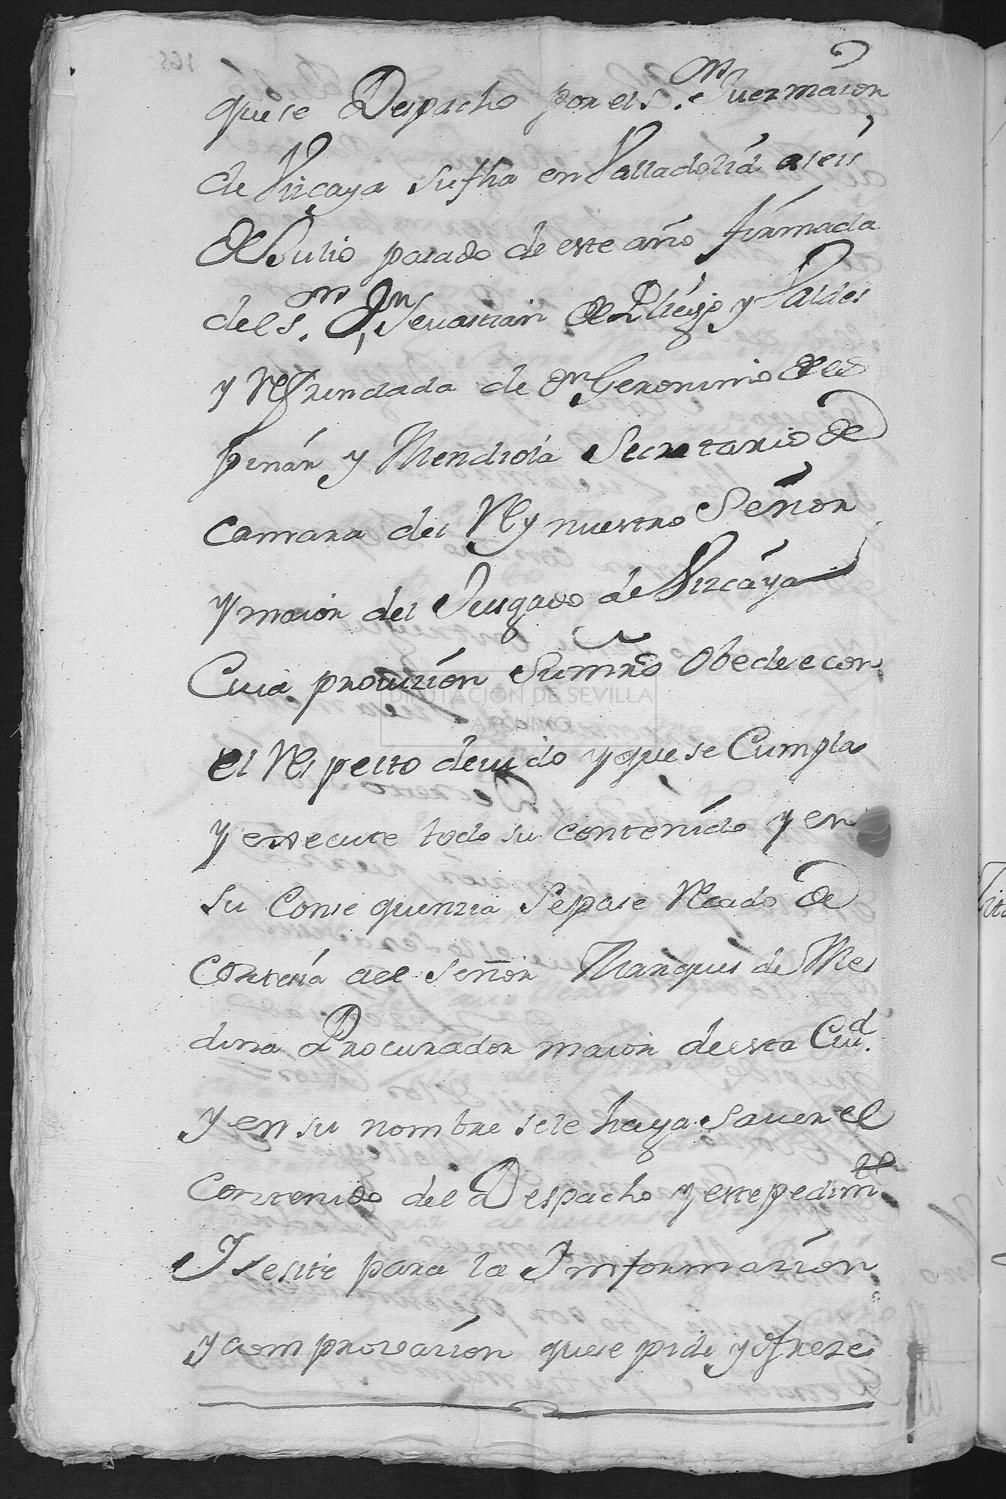 que se Despacho por el s.r Juez maior
de Vizcaya su fha en Valladolid a seis
de Julio pasado de este año firmada
del s.r Dn Sevastian de y Valdes
y Refrendada de Dn Geronimo de
pinan y Mendiola Secretario de
camara del Rey nuestro Señor
y maior del Jusgado de Vizcaya
Cuia provizion Su mrd Obedece con
el Respecto devido y que se Cumpla
y exsecute todo su contenido y en
su Conse quenzia Se pase Recado de
Cortesia al Señor Marques de Me
dina Procurador maior de esta Ciud.
y en su nombre se le haga saver el
Contenido del Despacho y este pedimto
Y se site para la Imformazion
y comprovazion que se pide y ofreze
DIPUTACIÓN DE SEVILLA